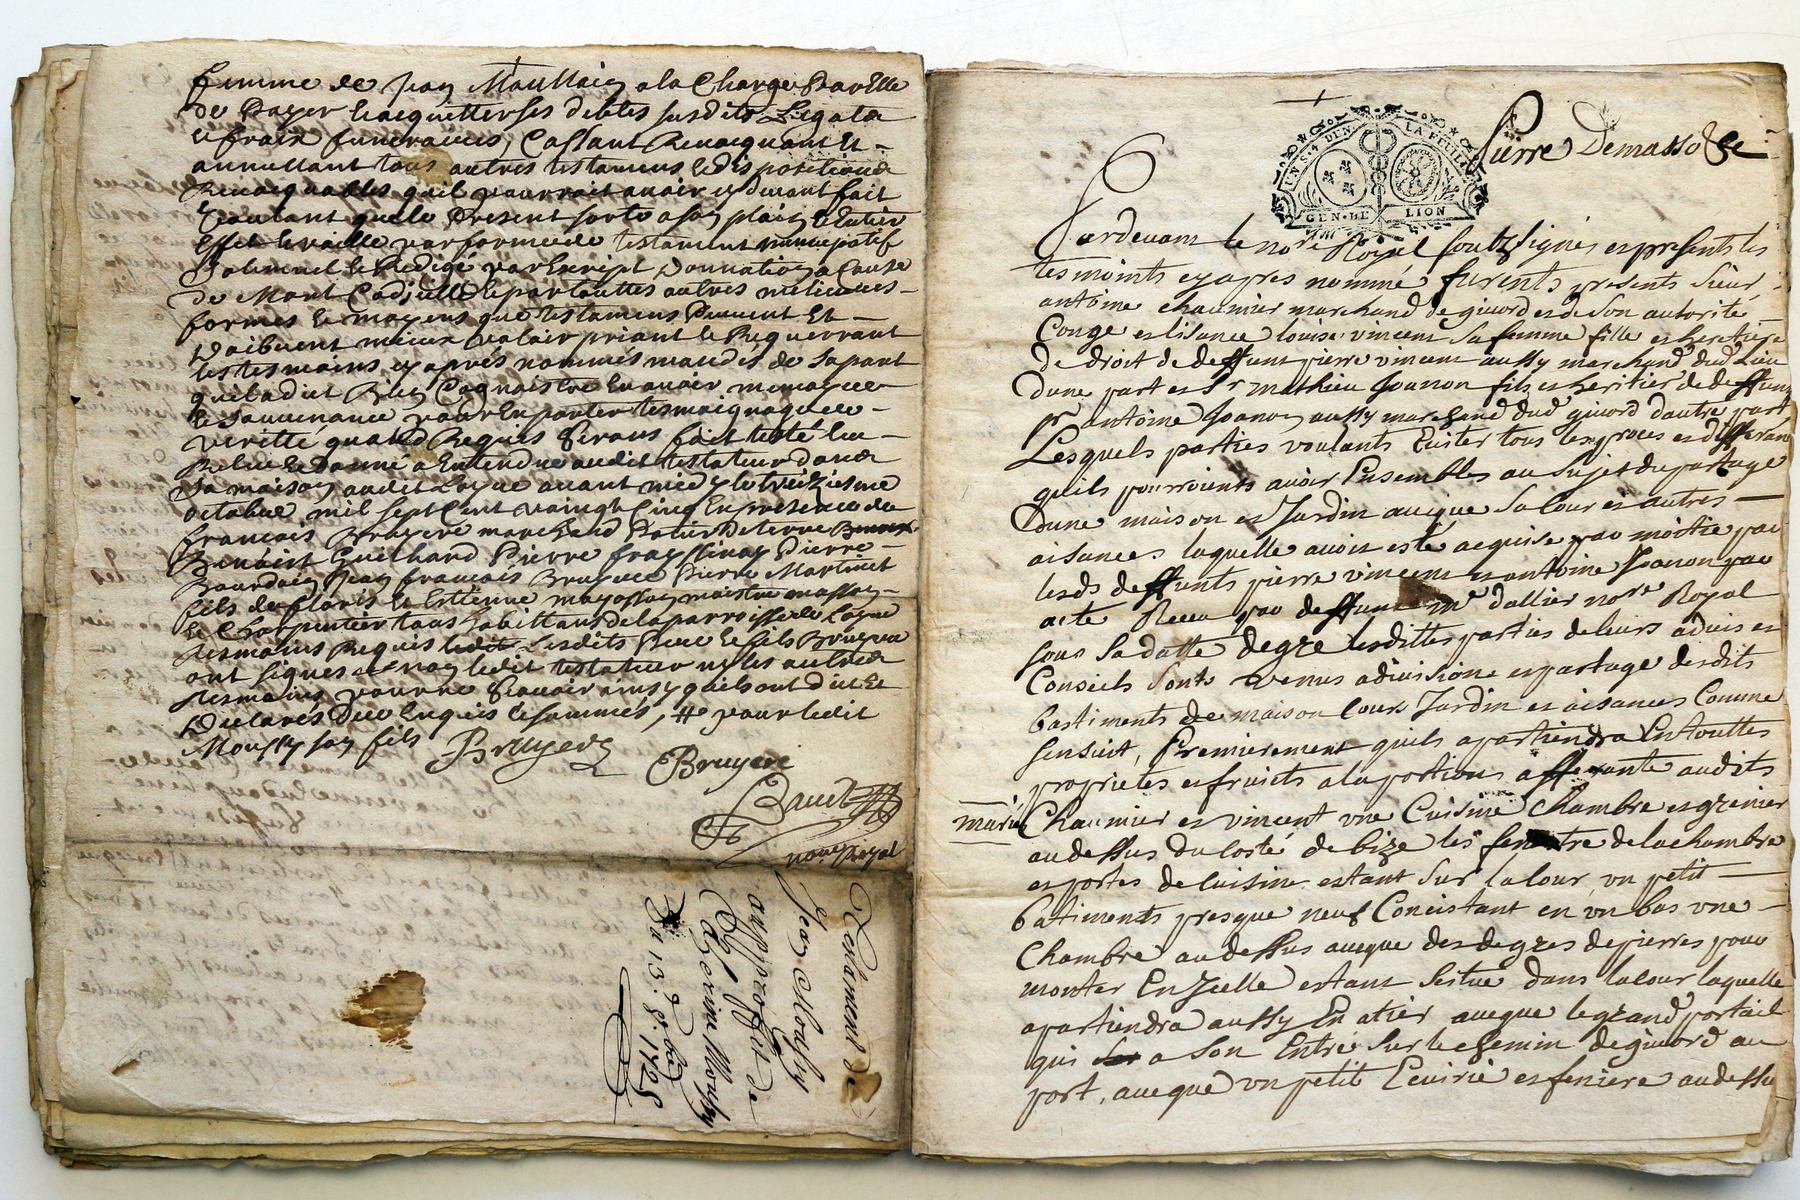 femme de Jean Moullaiz a la Charge Par Elle
de Payer & acquitter ses debtes susdits Legats
& fraix funeraires, Cassant Revocquant Et
annullant tous autres testamens & dispositions
Revocquables quil pourroit avoir cy devant fait
Voulant que le Present sorte a son plain & Entier
Effet & vaille par forme de testament nuncupatif
Solemnel & Redigé par Escript donnation a Cause
de Mort Codicille & par touttes autres meilieures
formes & moyens que testamens Peuvent Et
Doibvent mieux valoir priant & Requerrant
les tesmoins cy apres nommés mandés de sa part
quil a dit Bien Cognoistre En avoir memoyre
& souvenance pour En porter tesmoignage de
veritté quand Requis Seront fait testé leu
Releu & donné a Entendre audit testateur dans
sa maison audit Loyre avant midy le treiziesme
octobre mil sept Cent vaingt Cinq En presence de
francois Bruyere marchand Potier de terre
Benoist Guilhard Pierre Pierre
Bourdain Jean francois Bruyere Pierre Martinet
fils de & Estienne maistre masson
& Charpentier tous habittans de la parroisse de Loyre
tesmoins Requis lesdits Pere & fils Bruyere
ont signes et non ledit testateur ny les autres
tesmoins pour ne Scavoir ainsy quils ont dit Et
Declarés de ce Enquis & sommés, pour ledit
Moussy son fils Bruyere Bruyere
notre Royal
Testament de
Jean Moussy
au proffit de
Moussy
Du 13e 8bre 1725
UN S 4 DEN LA FEUILLE
GEN. DE LION
Pierre Demasso
Pardevant le nore Royal soubzsignés es presents les
tesmoints cy apres nommé furents presents Sieur
antoine chaumier marchand de givord es de son autorité
Conge es lisance louise vincent sa femme fille es heritiere
de droit de deffunt pierre vincent aussy marchand dud Lieu
dune part es Sr mathieu Joanon filz es heritier de deffunt
sr antoine Joanon aussy marchand dud givord dautre part
Lesquels parties voulants Eviter tous les proces es differan
quils pourroients avoir Ensembles au sujet du partage
Dune maison es Jardin avecque sa Cour es autres
aisances laquelle avoit esté acquise par moitié par
lesds deffunts pierre vincent es antoine Joanon par
acte Receu par deffunt Mr dallier nore Royal
sous sa datte de gre lesdittes parties de leurs advis es
Conseils sonts venus a division es partage desdits
bastiments de maison Cour Jardin es aisances Comme
sensuit, Premierement quils apartiendra En touttes
proprietes es fruicts a la portions afferante audits
Chaumier es vincent une Cuisine Chambre es grenier
au dessus du Costé de bize les fenetre de la chambre
es portes de Cuisine estant sur la Cour, un petit
batiments presque neuf Concistant en un bas une
Chambre au dessus avecque des degres de pierres pour
monter En Jcelle estant scitué dans la Cour laquelle
apartiendra aussy En atier avecque le grand portail
qui a son Entrée sur le chemin de givord au
port, avecque un petit Ecuirie es feniere au dessu